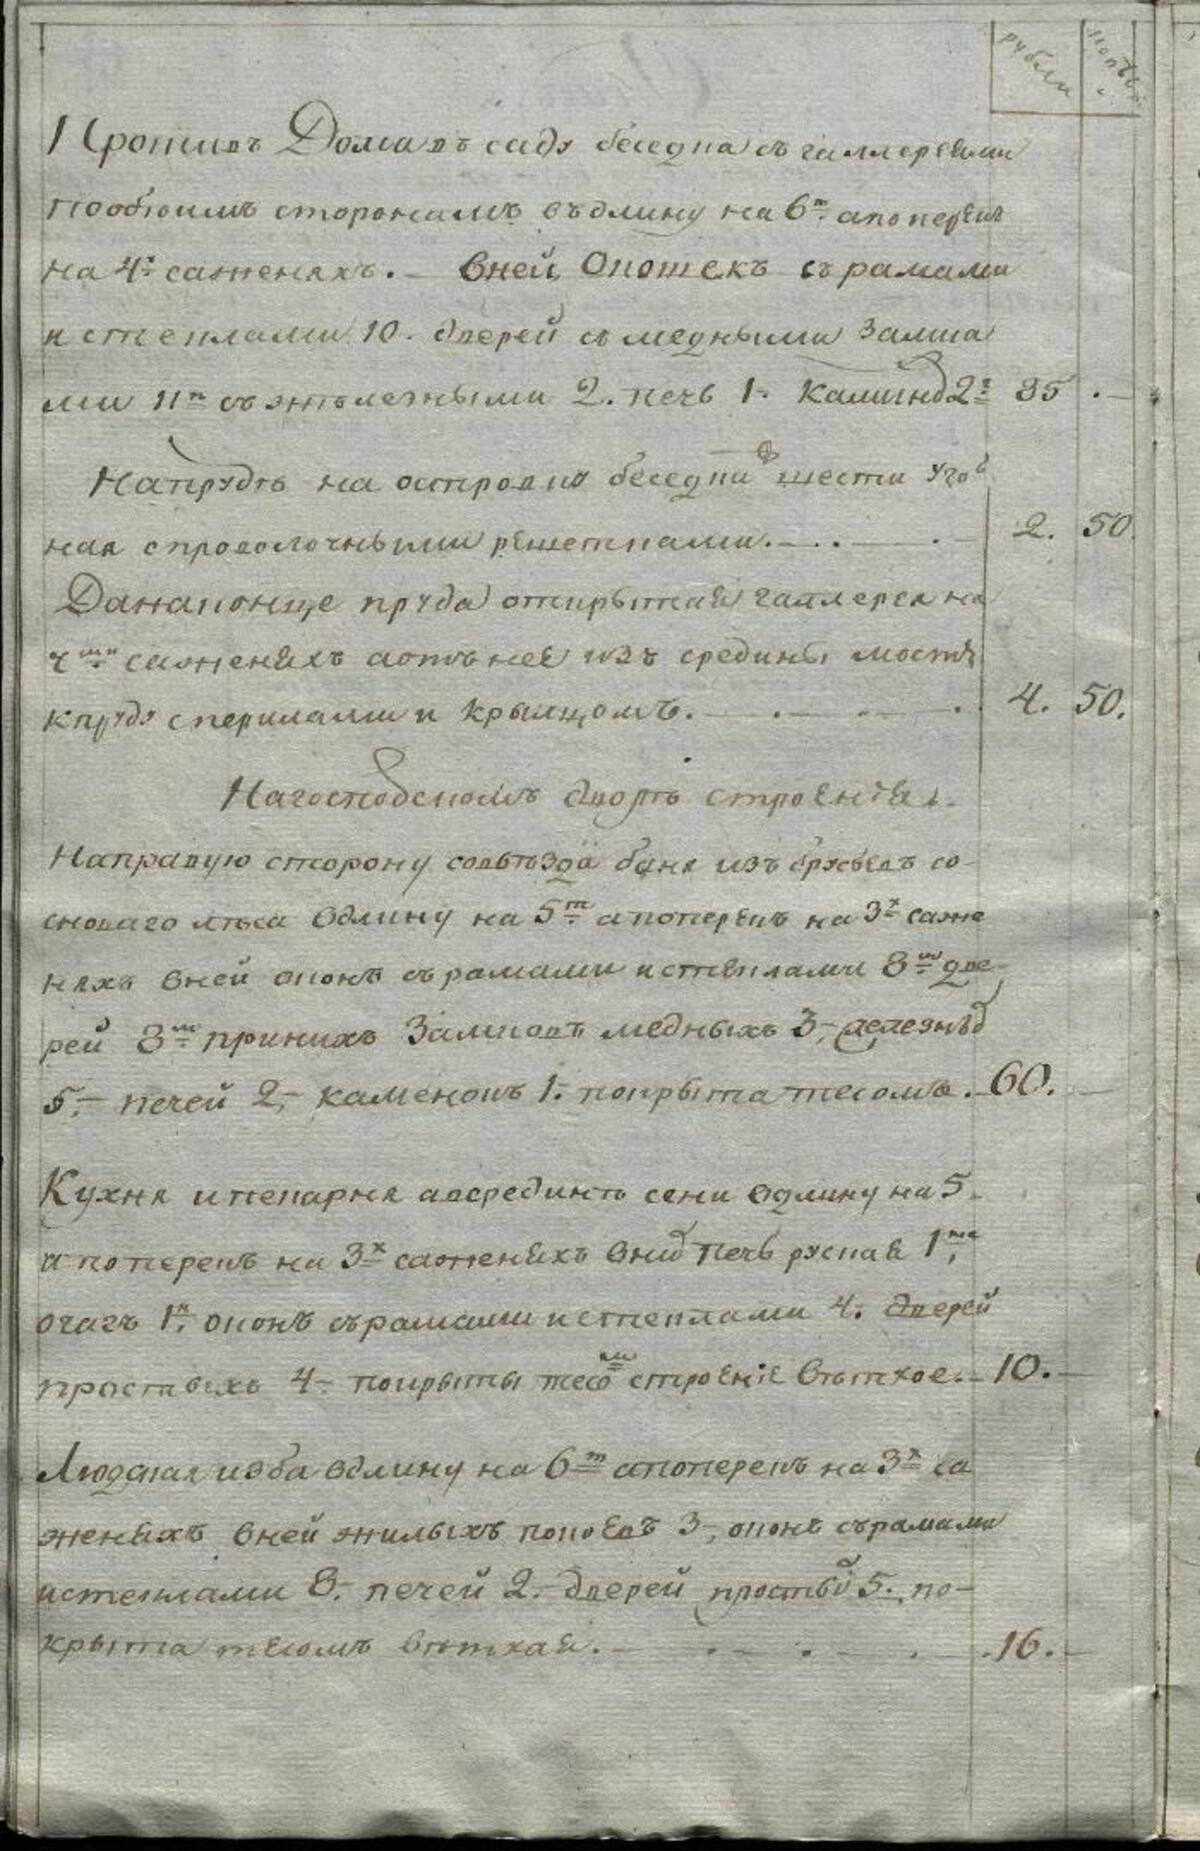 рубли копѣки
Противъ Дома въ саду беседка съ галлереями
пообоимъ сторонамъ въдлину на 6ти апоперекъ
на 4х саженяхъ. — вней Окошекъ съ рамами
и стеклами 10. дверей с медными Замка
ми 11ть съ жѣлезными 2. печь 1. Каминовъ 2: 35 . —
Напрудѣ на островку беседка в шести уголь
ная спроволочными решетками. — . . — . — 2. 50.
Данаконце пруда открытая галлерея на
ч сажен­яхъ аотъ нее изъ средины мостъ
кпруду сперилами и крылцомъ. — . — . — . 4. 50.
Нагосподскомъ дворѣ строение.
Направую сторону совъѣзда баня изъ брусьевъ со-
сноваго лѣса вдлину на 5ти апоперекъ на 3х саже
няхъ вней оконъ съ рамами истеклами 8м две-
рей 8м приних Замковъ медныхъ 3. железныхъ
5. — печей 2. — каменокъ 1. покрыта тесомъ. — 60. —
Кухня ипекарня авсрединѣ сени вдлину на 5.
и поперекъ на 3х саженяхъ вних печь руская 1.
очагъ 1. оконъ съ рамами истеклами 4. дверей
простыхъ 4 — покрыты тесомъ строение вѣтхое. — 10. —
Людская изба вдлину на 6ти апоперекъ на 3х са
женяхъ вней жилыхъ покоевъ 3., оконъ съ рамами
истеклами 8. печей 2. — дверей простыхъ 5. по-
крыта тесомъ вѣтхая. — . — . — . — 16. —